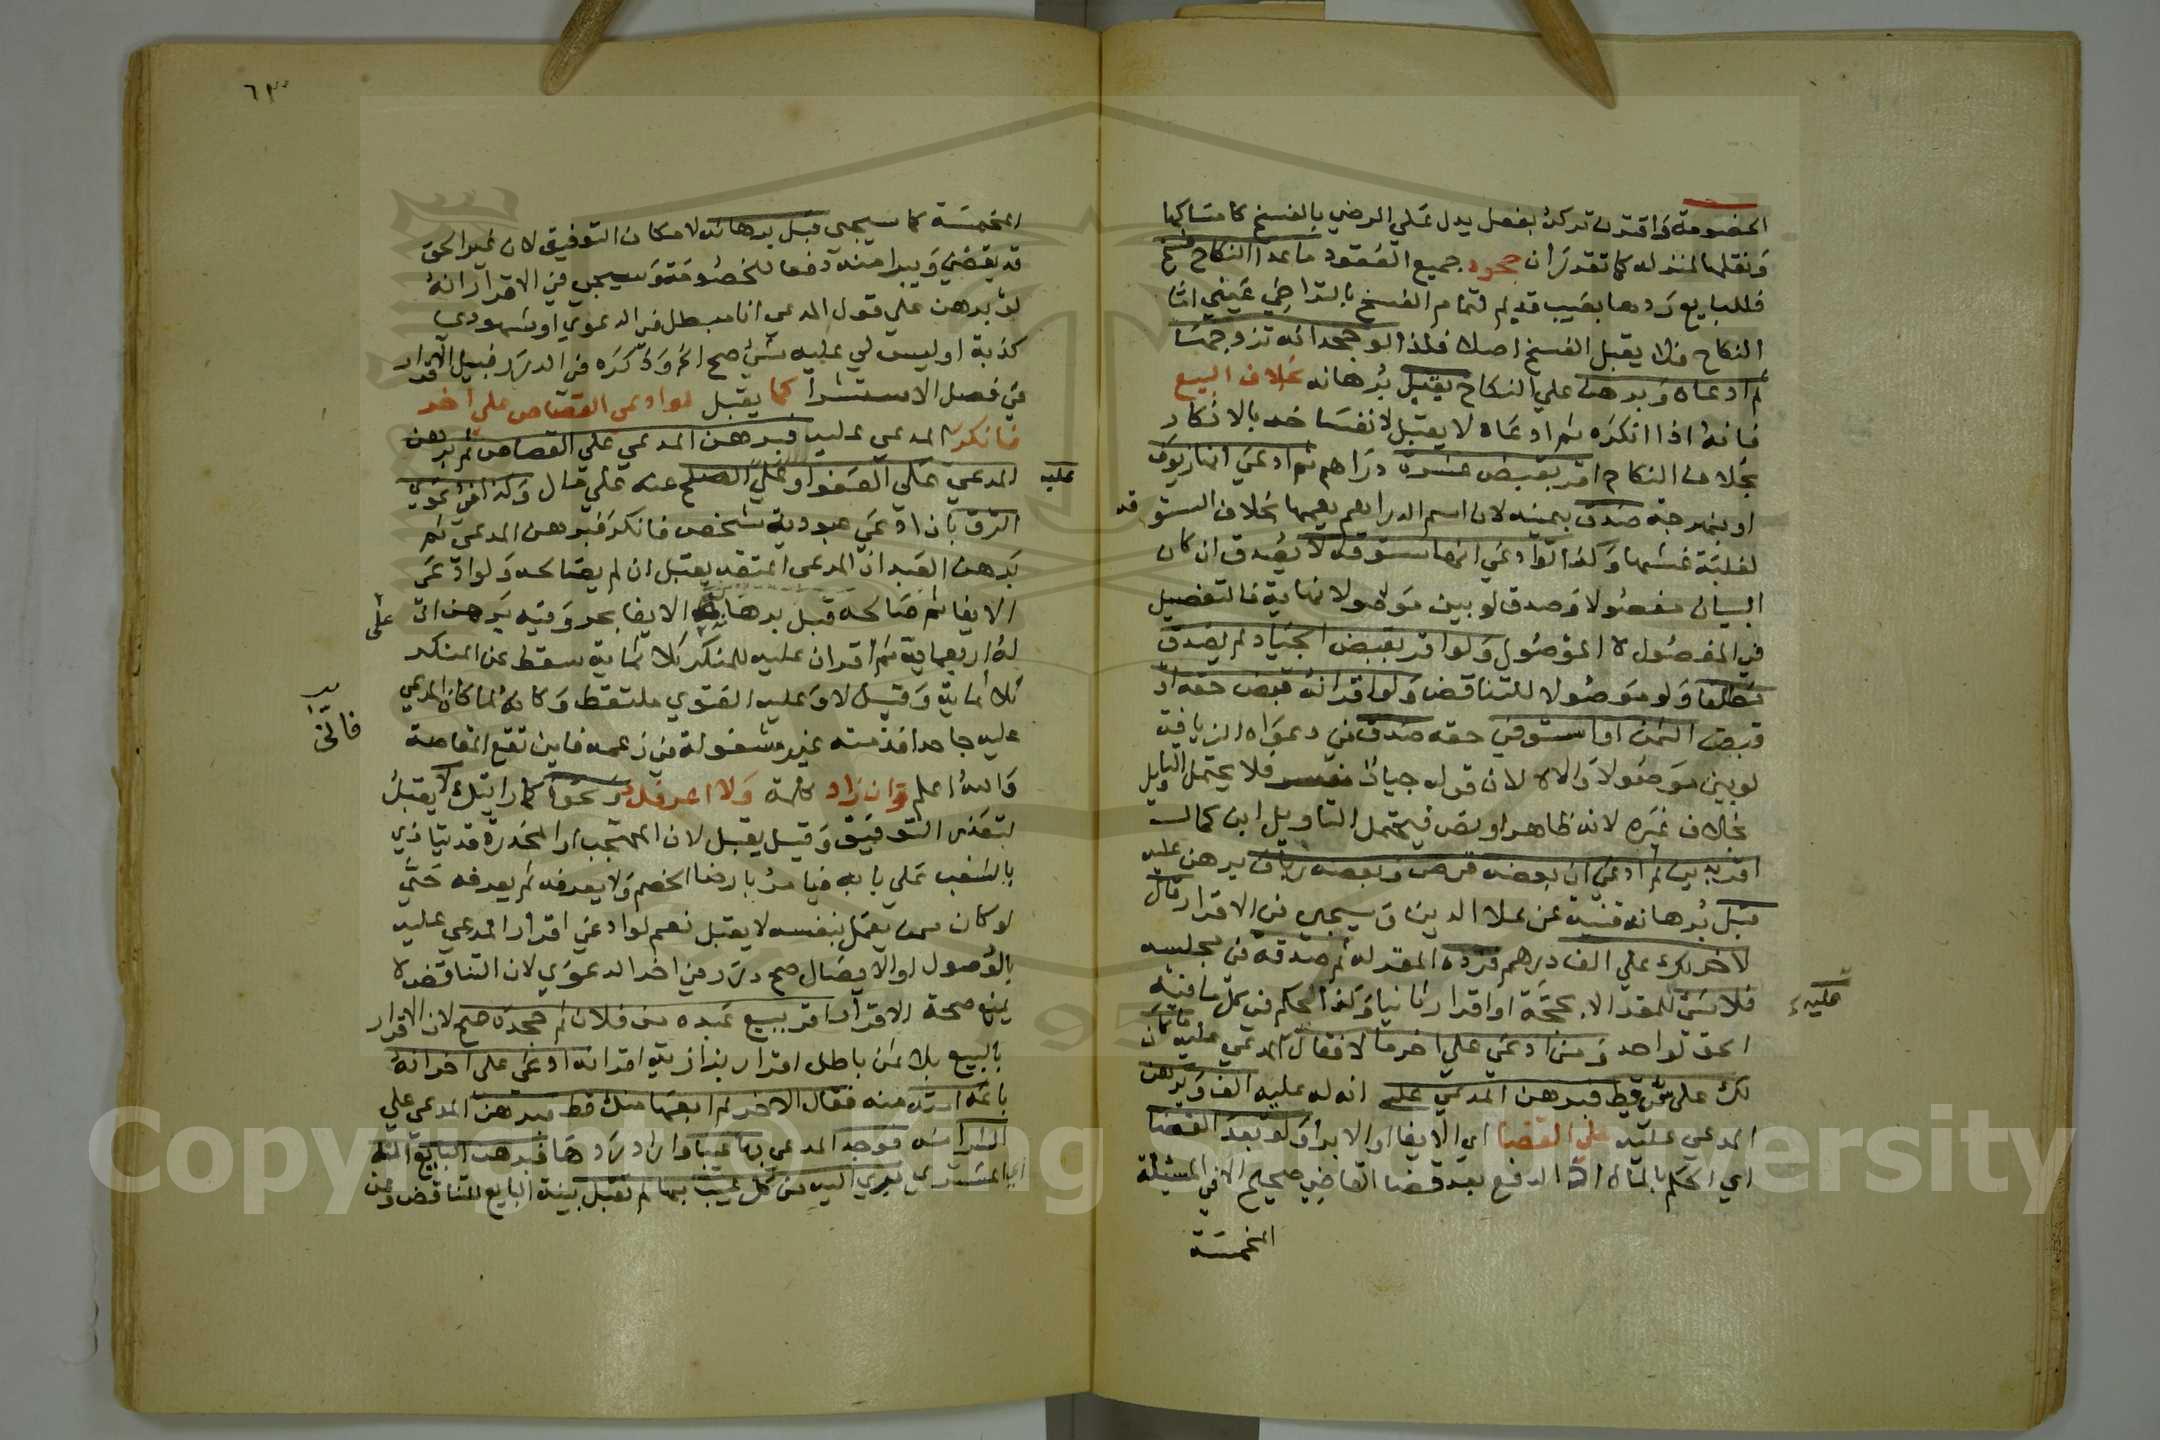 الخصومة واقترن تركه بفعل يدل علي الرضي بالفسخ كامساكها
ونقلها لمنزله كما تقرر ان جحود جميع العقود ماعدا النكاح فسخ
فللبايع ردها بعيب قديم لتمام الفسخ بالتراضي عيني اما
النكاح فلا يقبل الفسخ اصلا فلذا لو جحد انه تزوجها
ثم ادعاه وبرهن علي النكاح يقبل برهانه بخلاف البيع
فانه اذا انكره ثم ادعاه لا يقبل لانفساخه بالانكار
بخلاف النكاح اقر بقبض عشرة دراهم ثم ادعي انها زيوف
او نبهرجة صدق بيمينه لان اسم الدراهم يعمها بخلاف الستوقه
لغلبة غشها وكذا لو ادعي انها ستوقة لا يصدق ان كان
البيان مفصولا وصدق لو بين موصولا نهاية فالتفصيل
في المفصول لا الموصول ولو اقر بقبض الجياد لم يصدق
مطلقا ولو موصولا للتناقض ولو اقر انه قبض حقه او
قبض الثمن او استوفي حقه صدق في دعواه الزيافة
لو بين موصولا والا لا لان قوله جياد مفسر فلا يحتمل التاويل
بخلاف غيره لانه ظاهر او نص فيحتمل التاويل ابن كمال
اقر بدين ثم ادعي ان بعضه قرض وبعضه ربا وبرهن عليه
قبل برهانه قنية عن علا الدين وسيجي في الاقرار قال
لاخر لك علي الف درهم فرده المقر له ثم صدقه في مجلسه
فلا شي للمقر له الا بحجة او اقرار ثانيا وكذا الحكم في كل ما فيه
الحق لواحد ومن ادعي علي اخر مالا فقال المدعي عليه ما كان
لك علي شي قط فبرهن المدعي علي انه له عليه الف وبرهن
المدعي عليه علي القضا اي الايفا او الابرا ولو بعد القضا
اي الحكم بالمال اذ الدفع بعد قضا القاضي صحيح الا في المسئلة
المخمسة
عليه
٦٣
المخمسة كما سيجي قبل برهانه لامكان التوفيق لان غير الحق
قد يقضي ويبرا منه دفعا للخصومة وسيجي في الاقرار انه
لو برهن علي قول المدعي انا مبطل في الدعوي او شهودي
كذبة او ليس لي عليه شي صح الخ وذكره في الدرر قبيل الاقرار
في فصل الاستشرا كما يقبل لو ادعي القصاص علي اخر
فانكر المدعي عليه فبرهن المدعي علي القصاص ثم برهن
المدعي عليه علي العفو او علي الصلح عنه علي مال وكذا في دعوي
الرق بان ادعي عبودية شخص فانكر فبرهن المدعي ثم
برهن العبد ان المدعي اعتقه يقبل ان لم يصالحه ولو ادعي
الايفا ثم صالحه قبل برهانه علي الايفا بحر وفيه برهن ان
له اربعماية ثم اقر ان عليه للمنكر ثلاثماية سقط عن المنكر
ثلاثماية وقيل لا وعليه الفتوي ملتقط وكانه لما كان المدعي
عليه جاحدا فذمته غير مشغولة في زعمه فاين تقع المقاصة
والله اعلم وان زاد كلمة ولا اعرفك ونحوه كما رايتك لا يقبل
لتعذر التوفيق وقيل يقبل لان المحتجب او المخدرة قد يتاذي
بالشغب علي بابه فيامر بارضا الخصم ولا يعرفه ثم يعرفه حتي
لو كان ممن يعمل بنفسه لا يقبل نعم لو ادعي اقرار المدعي عليه
بالوصول او الايصال صح درر في اخر الدعوي لان التناقض لا
يمنع صحة الاقرار اقر ببيع عبده من فلان ثم جحده صح لان الاقرار
بالبيع بلا ثمن باطل اقرار بزازية اقرانه ادعي علي اخر انه
باعه امته منه فقال الاخر لم ابعها منك قط فبرهن المدعي علي
الشرا منه فوجد المدعي بها عيبا واراد ردها فبرهن البايع انه
اي المشتري بري اليه من كل عيب بها لم تقبل بينة البايع للتناقض وعن